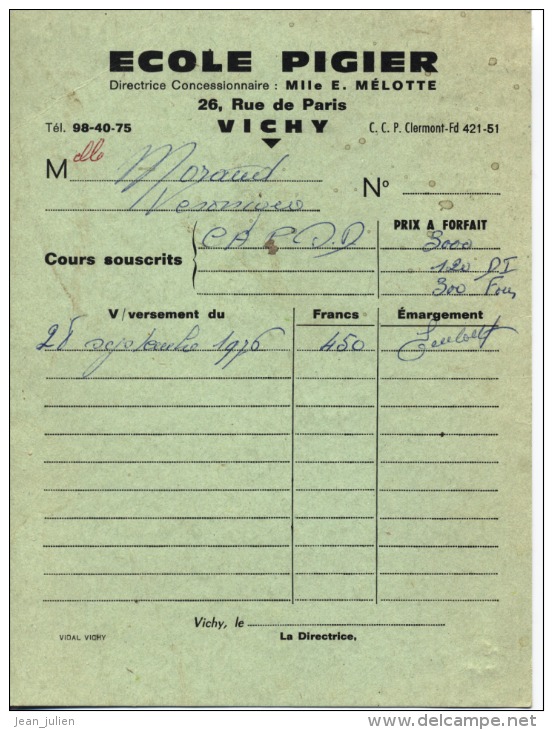 ECOLE PIGIER
Directrice Concessionnaire : Mlle E. MÉLOTTE
26, Rue de Paris
Tél. 98-40-75 VICHY C. C. P. Clermont-Fd 421-51
Mlle Moraud
N°
PRIX A FORFAIT
C A P 3000
Cours souscrits
120 DI
300 Four
V/versement du Francs Émargement
septembre 1976 450
Vichy, le
VIDAL VICHY La Directrice,
jean_julien
www.delcampe.net